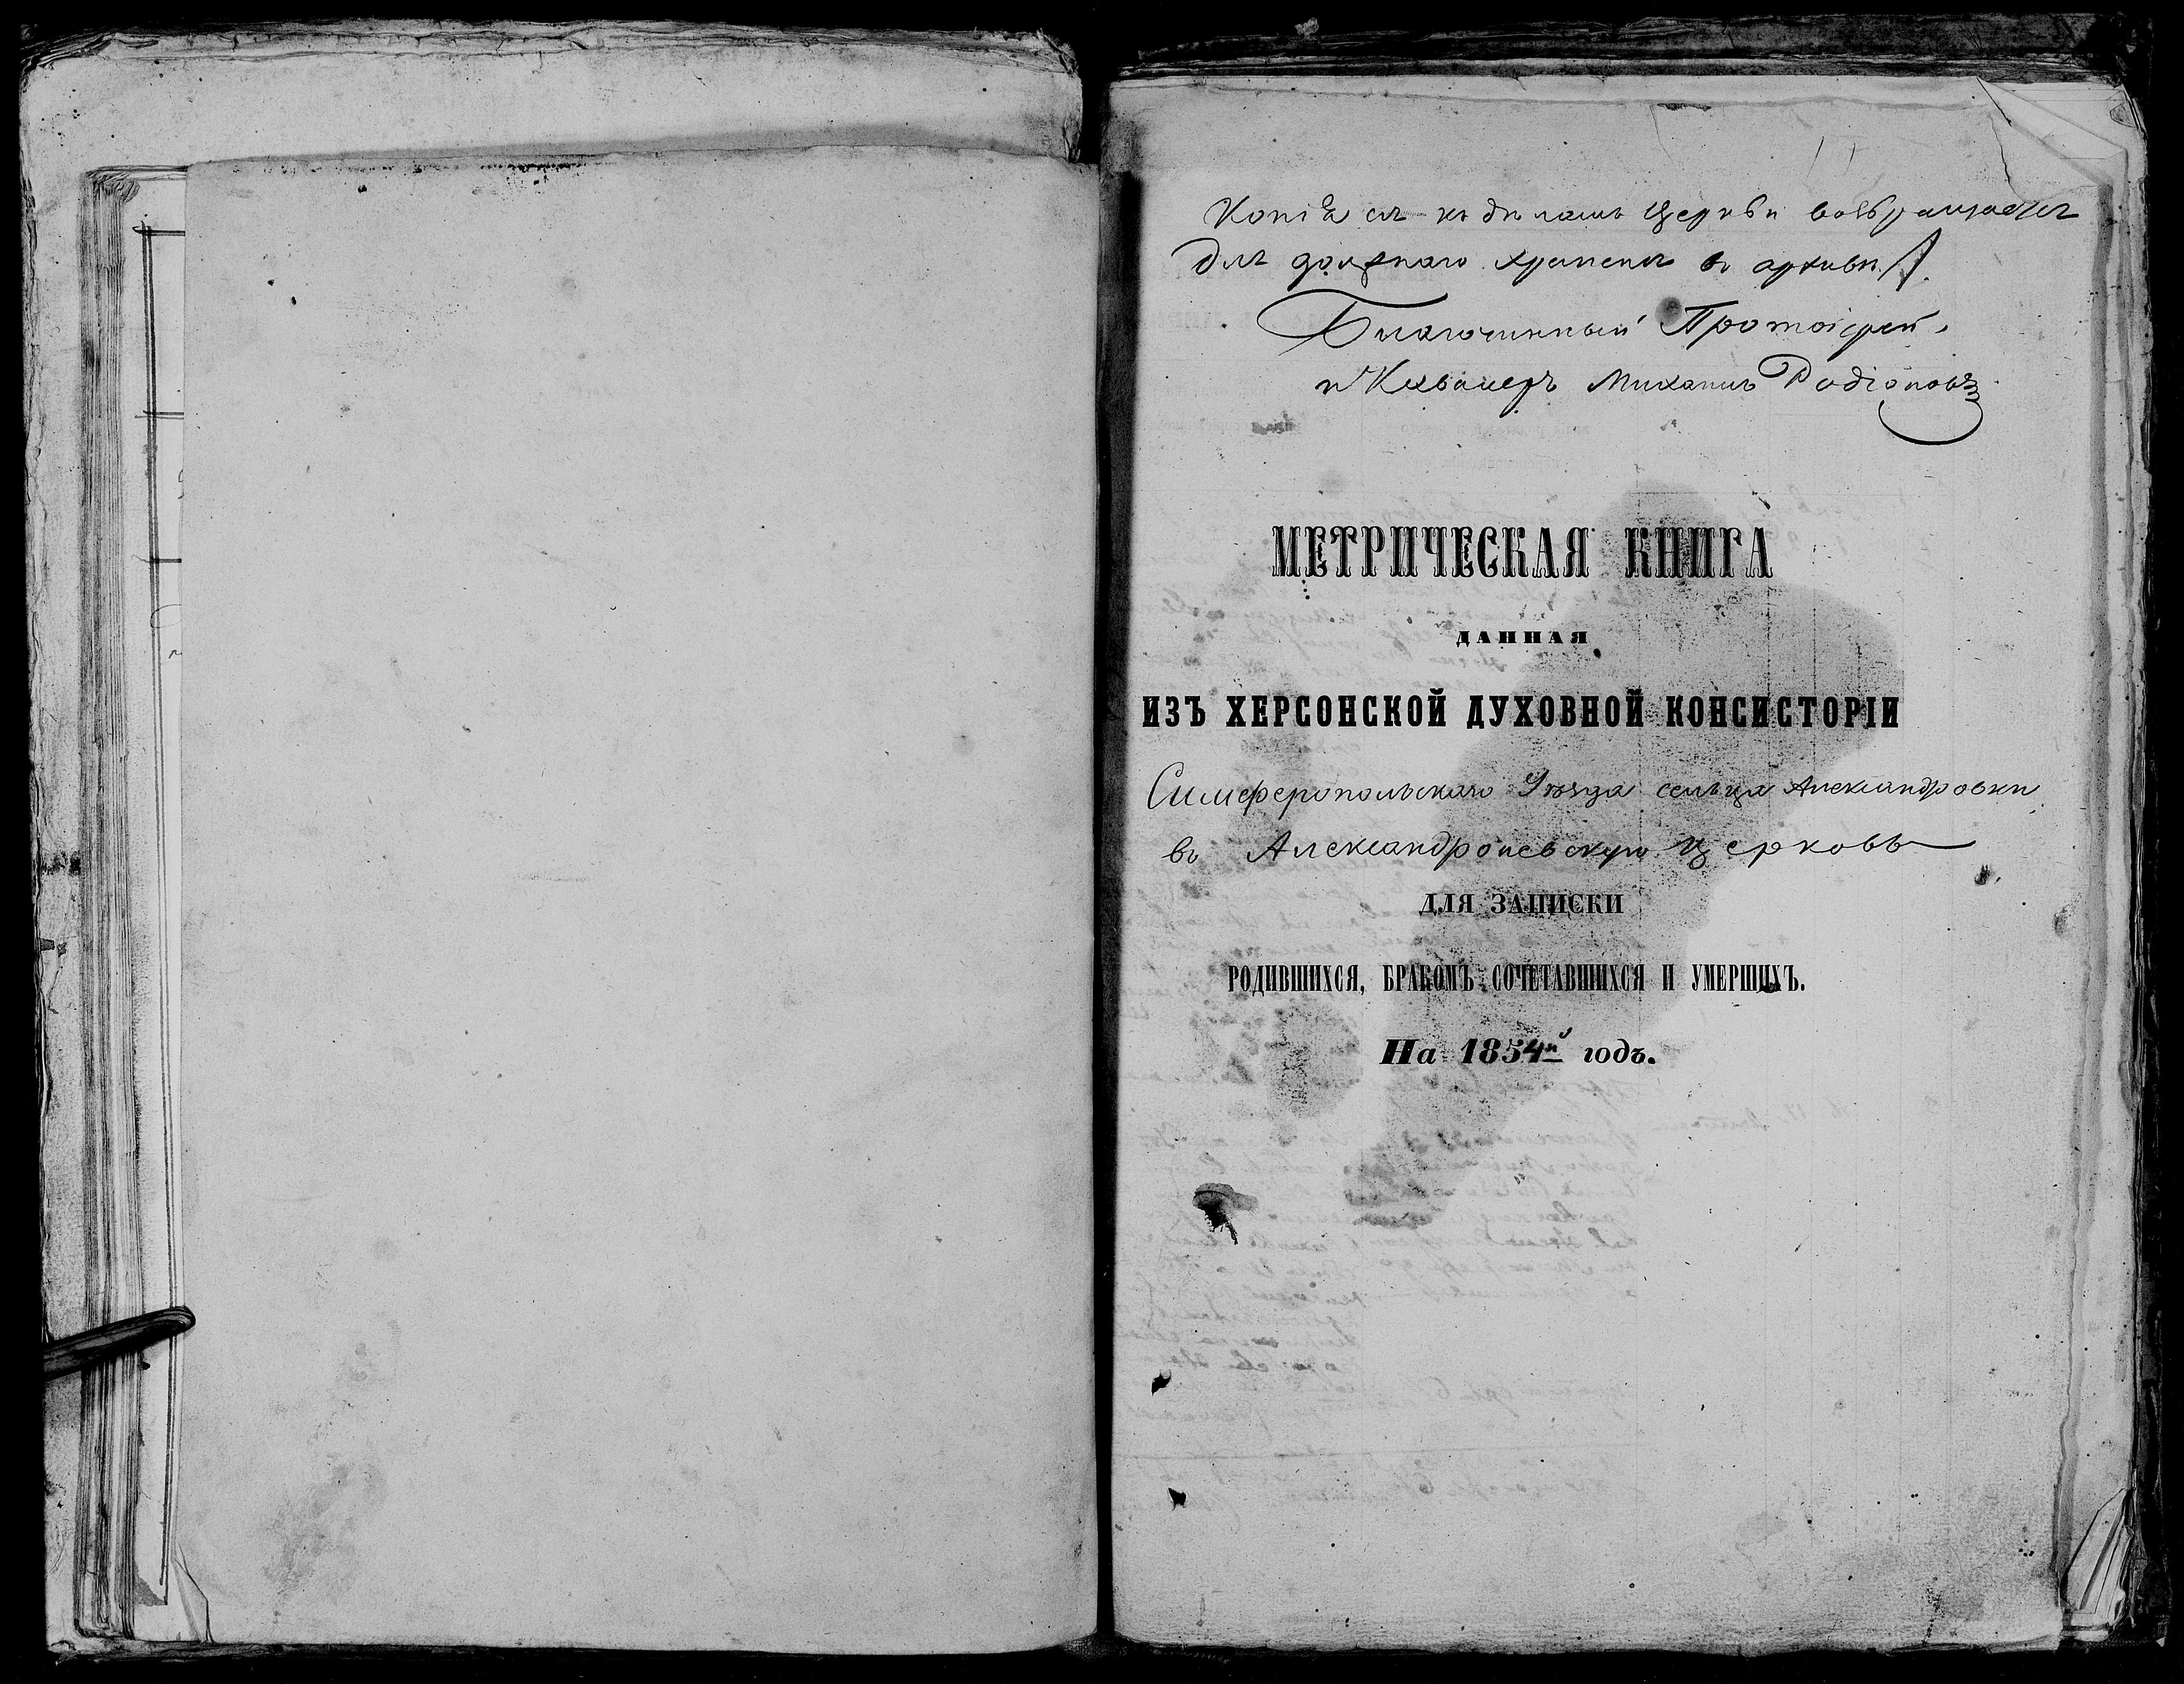 Копія сія къ дѣламъ Церкви возвращается
для должнаго храненія въ архивѣ.
Благочинный Протоіерей
и Кавалеръ Михаилъ Родіоновъ
МЕТРИЧЕСКАЯ КНИГА
ДАННАЯ
ИЗЪ ХЕРСОНСКОЙ ДУХОВНОЙ КОНСИСТОРІИ
Симферопольскаго Уѣзда сельца Александровки
въ Александроневскую Церковь
ДЛЯ ЗАПИСКИ
РОДИВШИХСЯ, БРАКОМЪ СОЧЕТАВШИХСЯ И УМЕРШИХЪ.
На 1854й годъ.